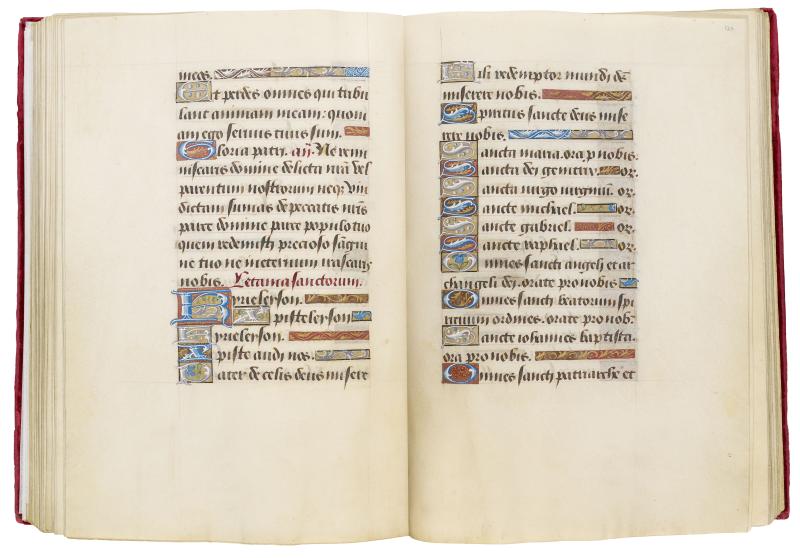 meos.
Et perdes omnes qui tribu
lant animam meam: quoni
am ego servus tuus sum.
Gloria patri. añ. Ne remi
niscaris domine delicta nr̃a vel
parentum nostrorum neqꝫ vin
dictam sumas de peccatis nr̃is
parce domine parce populo tuo
quem redemisti precioso sãgui
ne tuo ne ineternum irascaris
nobis. Letania sanctorum.
Kyrieleyson.
Xp̃isteleyson
Kyrieleyson.
Xp̃iste audi nos.
Pater de celis deus misere
Fili redemptor mundi de᷒
miserere nobis.
Spiritus sancte deus mise
rere nobis.
Sancta maria. ora p nobis.
Sancta dei genitrix. or.
Sancta virgo virginũ. or.
Sancte michael. or.
Sancte gabriel. or.
Sancte raphael. or.
Omnes sancti angeli et ar
changeli dei. orate pro nobis
Omnes sancti beatorum spi
rituum ordines. orate pro nob.
Sancte iohannes baptista.
ora pro nobis.
Omnes sancti patriarche et